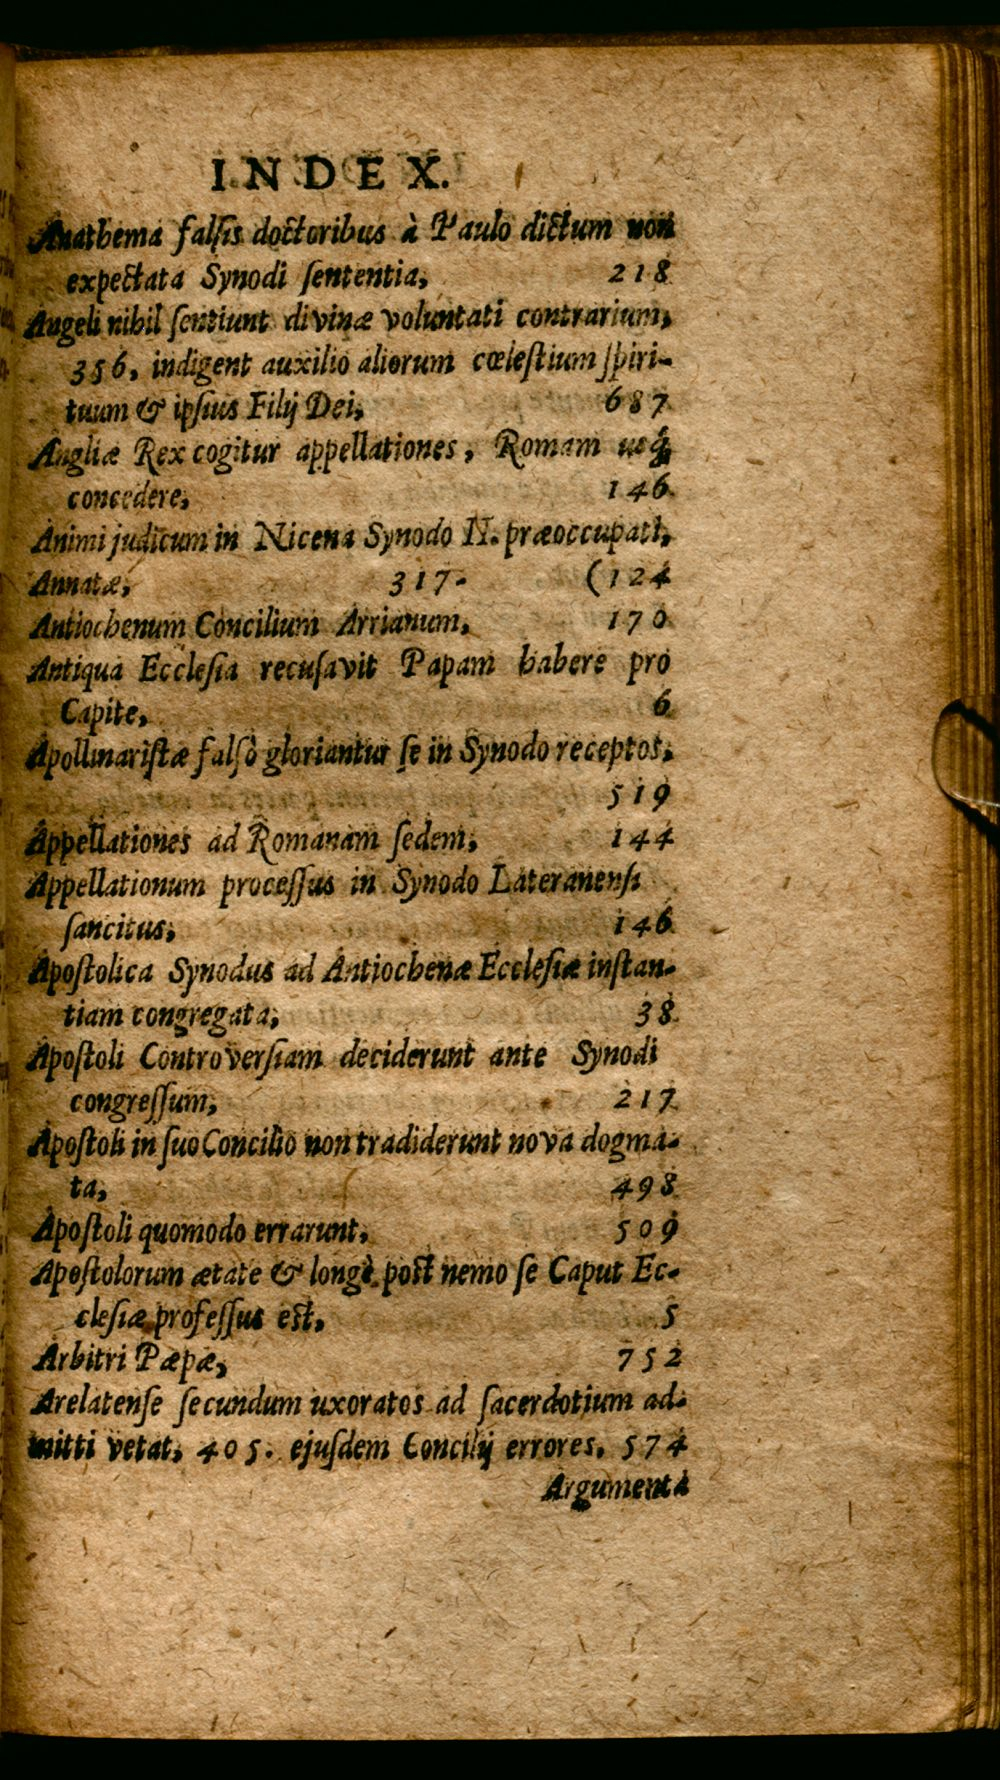 INDEX.
Anathema falſis doctoribus à Paulo dictum non
expectata Synodi ſententia, 218
Angeli nihil ſentiunt divinæ voluntati contrarium,
356, indigent auxilio aliorum cœleſtium ſpiri-
tuum & ipſius Filij Dei, 687
Angliæ Rex cogitur appellationes, Romam uſq́;
concedere, 146
Animi judicum in Nicena Synodo II. præoccupati,
Annatæ, 317. (124
Antiochenum Concilium Arrianum, 170
Antiqua Eccleſia recuſavit Papam habere pro
Capite, 6
Apollinariſtæ falſò gloriantur ſe in Synodo receptos,
519
Appellationes ad Romanam ſedem, 144
Appellationum proceſſus in Synodo Lateranenſi
ſancitus, 146
Apoſtolica Synodus ad Antiochenæ Eccleſiæ inſtan-
tiam congregata, 38
Apoſtoli Controverſiam deciderunt ante Synodi
congreſſum, 217
Apoſtoli in ſuo Concilio non tradiderunt nova dogma-
ta, 498
Apoſtoli quomodo errarunt, 509
Apoſtolorum ætate & longè poſt nemo ſe Caput Ec-
cleſiæ profeſſus eſt, 5
Arbitri Pæpæ, 752
Arelatenſe ſecundum uxoratos ad ſacerdotium ad-
mitti vetat, 405. ejuſdem Concilij errores, 574
Argumenta